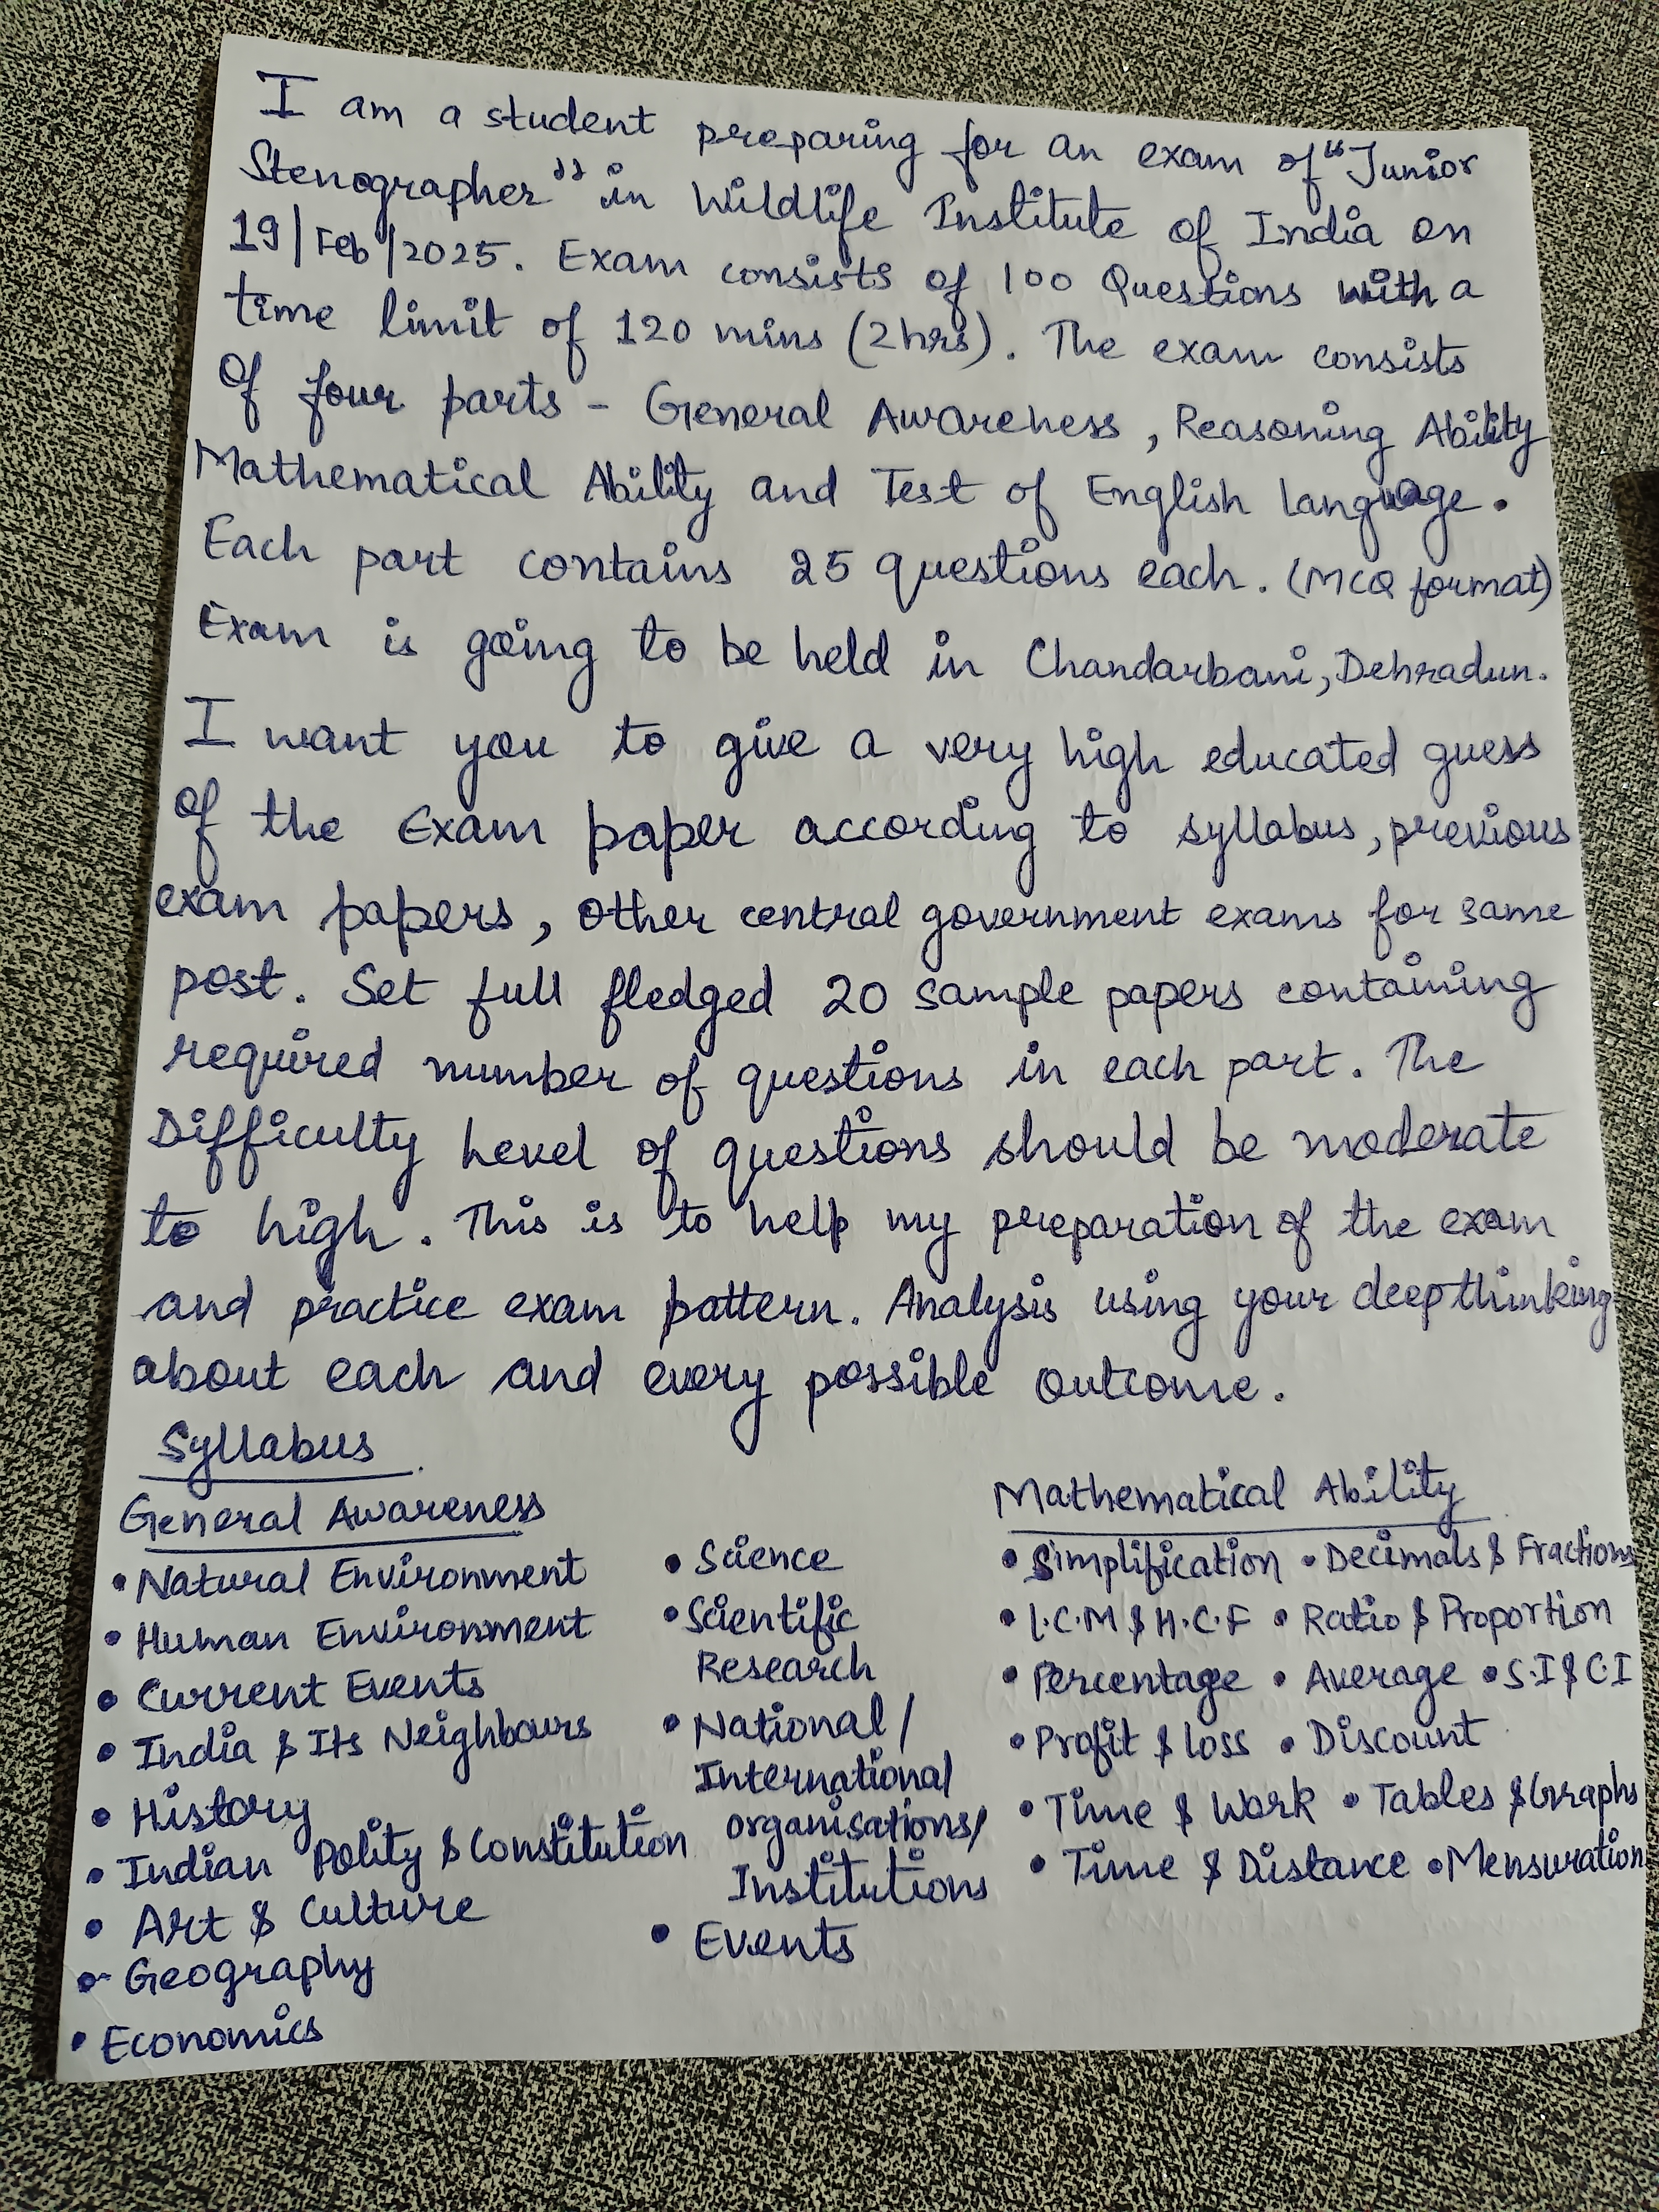 I am a student preparing for an exam of "Junior
Stenographer" in Wildlife Institute of India on
19/Feb/2025. Exam consists of 100 Questions with a
time limit of 120 mins (2hrs). The exam consists
Of four parts - General Awareness, Reasoning Ability
Mathematical Ability and Test of English Language.
Each part contains 25 questions each. (MCQ format)
Exam is going to be held in Chandarbani, Dehradun.
I want you to give a very high educated guess
of the Exam paper according to syllabus, previous
exam papers, other central government exams for same
post. Set full fledged 20 sample papers containing
required number of questions in each part. The
Difficulty Level of questions should be moderate
to high. This is to help my preparation of the exam
and practice exam pattern. Analysis using your deepthinking
about each and every possible outcome.
Syllabus
General Awareness
• Natural Environment
• Human Environment
• Current Events
• India & Its Neighbours
• History
• Indian Polity & Constitution
• Art & Culture
• Geography
• Economics
• Science
• Scientific
Research
• National /
International
organisations/
Institutions
• Events
Mathematical Ability
• Simplification • Decimals & Fractions
• L.C.M & H.C.F • Ratio & Proportion
• Percentage • Average • S.I & C.I
• Profit & loss • Discount
• Time & Work • Tables & Graphs
• Time & Distance • Mensuration